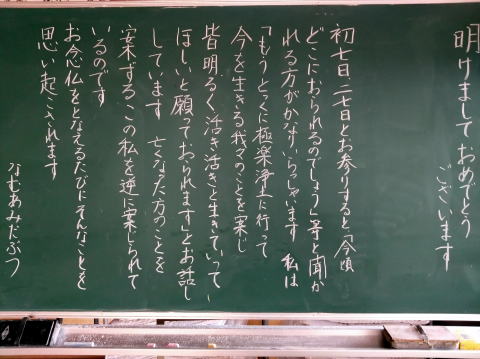 明けまして おめでとう
ございます
初七日、二七日とお参りすると「今頃
どこにおられるのでしょう」等と聞か
れる方がかなりいらっしゃいます 私は
「もうとっくに極楽浄土に行って
今を生きる我々のことを案じ
皆明るく活き活きと生きていって
ほしいと願っておられます」とお話し
しています 亡くなった方のことを
案ずるこの私を逆に案じられて
いるのです
お念仏をとなえるたびにそんなことを
思い起こされます
なむあみだぶつ